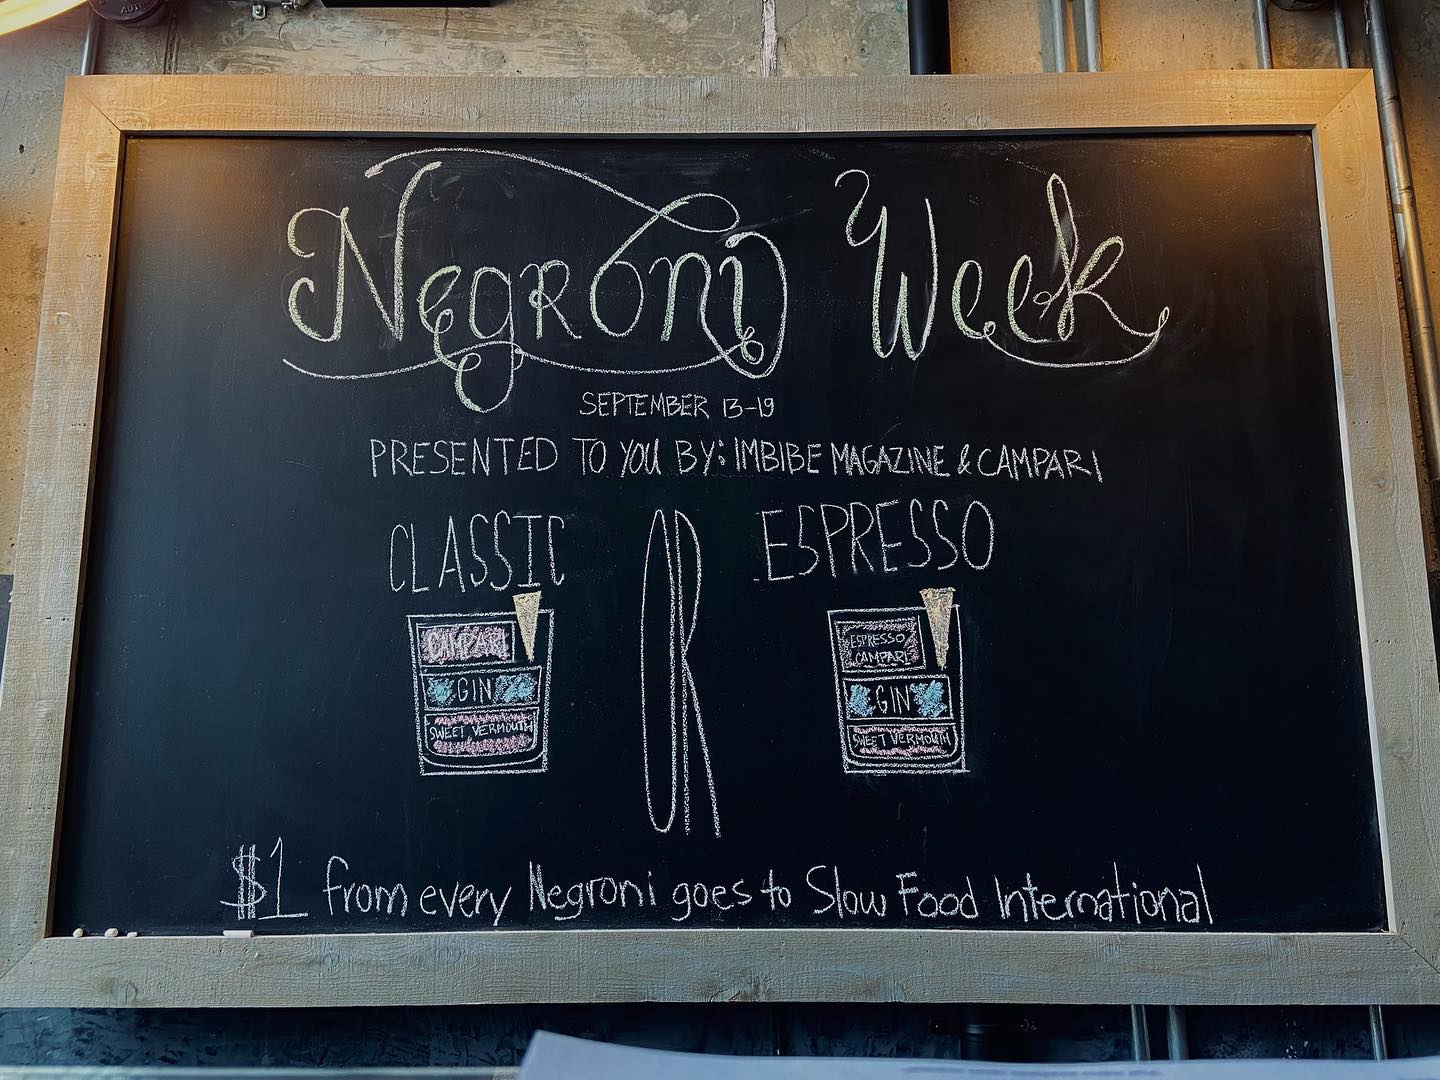 Negroni Week
SEPTEMBER 13-19
PRESENTED TO YOU BY: IMBIBE MAGAZINE & CAMPARI
CLASSIC OR ESPRESSO
CAMPARI
GIN
SWEET VERMOUTH
ESPRESSO
CAMPARI
GIN
SWEET VERMOUTH
$1 from every Negroni goes to Slow Food International